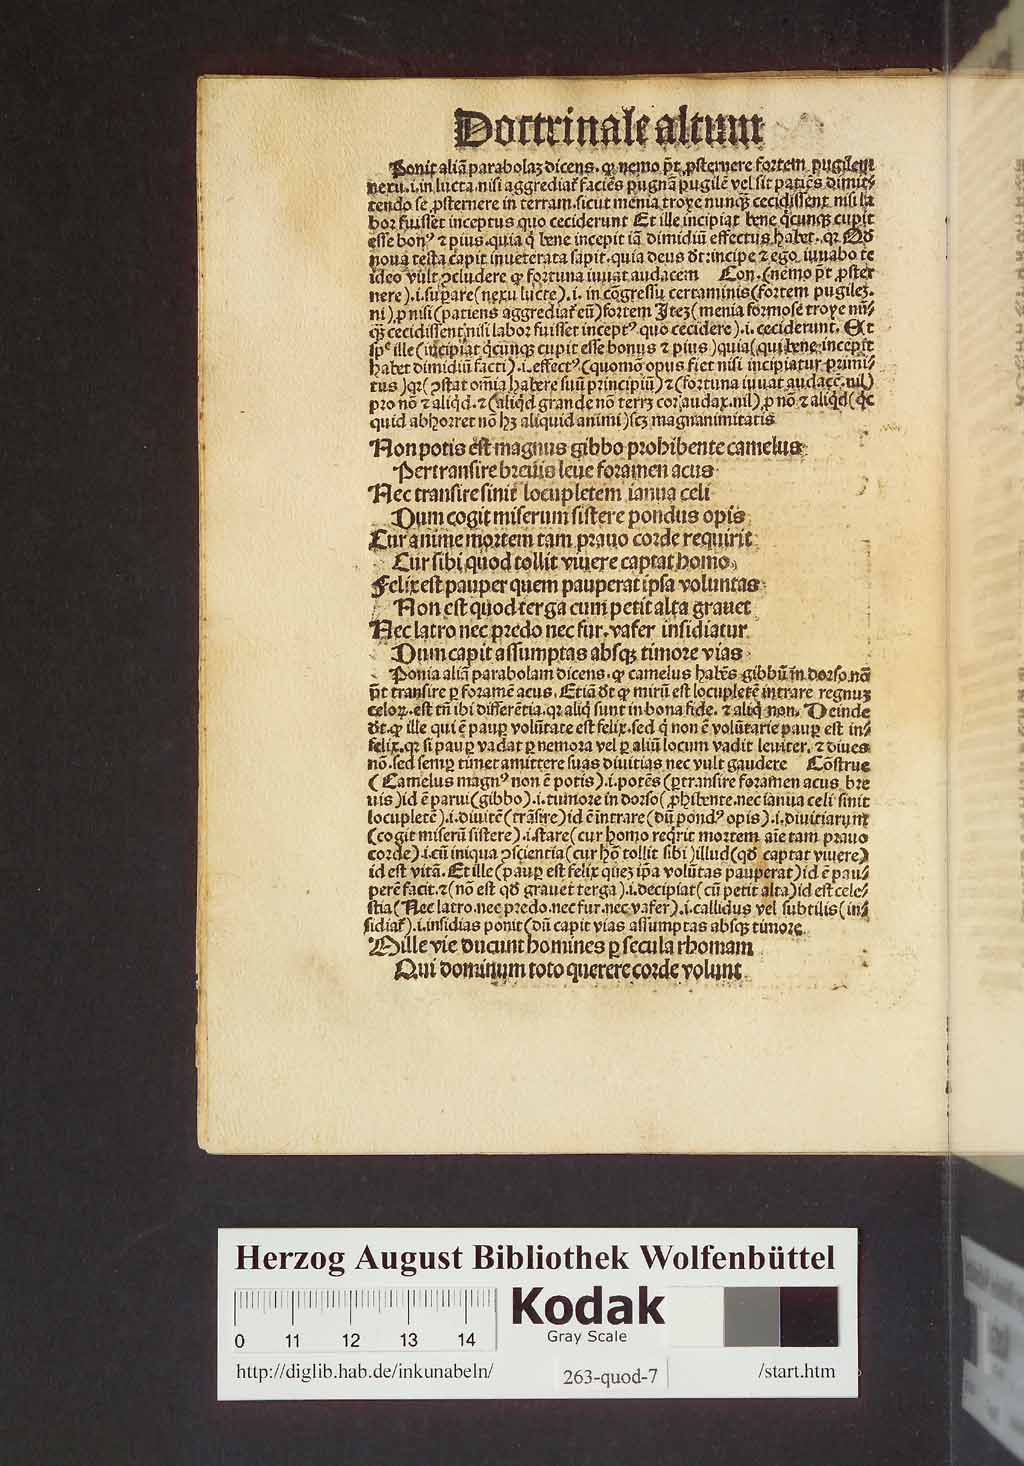 Doctrinale altum
Ponit aliā parabolaꝫ dicens. ꝙ nemo p̄t ꝓsternere fortem pugilem
nexu .i. in lucta nisi aggrediaꝉ faciēs pugnā pugilē vel sit patiēs dimit⸗
tendo se ꝓsternere in terram. sicut menia troye nunꝙ̄ cecidissent nisi la
bor fuisset inceptus quo ceciderunt Et ille incipiat bene q̇cunqꝫ cupit
esse bonꝰ ⁊ pius. quia q̇ bene incepit iā dimidiū effectus habet. qꝛ Qd̄
noua testa capit inueterata sapit. quia deus dt̄: incipe ⁊ ego iuuabo te
ideo vult ꝯcludere ꝙ fortuna iuuat audacem Con. (nemo p̄t ꝓster
nere) .i. supare (nexu lucte) .i. in cōgressu certaminis (fortem pugileꝫ.
ni) .p nisi (patiens aggrediaꝉ eū) fortem Iteꝫ (menia formose troye nū⸗
qꝫ cecidissent nisi labor fuisset inceptꝰ quo cecidere) .i. ceciderunt. Et
ille (incipiat q̇cunqꝫ cupit esse bonus ⁊ pius) quia (qui bene incepit
habet dimidiū facti) .i. effectꝰ (quomō opus fiet nisi incipiatur primi⸗
tus) qꝛ (ꝯstat om̄ia habere suū principiū) ⁊ (fortuna iuuat audacē. nil)
pro nō ⁊ aliqd. ⁊ (aliqd grande nō terrꝫ cor audax. nil) .p nō ⁊ aliqd (qc
quid abhorret nō hꝫ aliquid animi) scꝫ magnanimitatis
Non potis est magnus gibbo prohibente camelus
Pertransire breuis leue foramen acus
Nec transire sinit locupletem ianua celi
Dum cogit miserum sistere pondus opis
Cur anime mortem tam prauo corde requirit
Cur sibi quod tollit viuere captat homo
Felix est pauper quem pauperat ipsa voluntas
Non est quod terga cum petit alta grauet
Nec latro nec predo nec fur. vafer insidiatur
Dum capit assumptas absqꝫ timore vias
Ponia aliā parabolam dicens. ꝙ camelus habēs gibbū in dorso. nō
p̄t transire ꝑ foramē acus. Etiā dt̄ ꝙ mirū est locupletē intrare regnuꝫ
celoꝝ. est tn̄ ibi differētia. qꝛ aliq̇ sunt in bona fide. ⁊ aliq̇ non. Deinde
dt̄. ꝙ ille qui ē pauꝑ volūtate est felix. sed q̇ non ē volūtarie pauꝑ est in⸗
felix. qꝛ si pauꝑ vadat ꝑ nemora vel ꝑ aliū locum vadit leuiter. ⁊ diues
nō. sed semꝑ timet amittere suas diuitias nec vult gaudere Cōstrue
(Camelus magnꝰ non ē potis) .i. potēs (ꝑtransire foramen acus bre
uis) id ē parui (gibbo) .i. tumore in dorso (ꝓhibente. nec ianua celi sinit
locupletē) .i. diuitē (trāsire) id ē intrare (dū pondꝰ opis) .i. diuitiarum
(cogit miserū sistere) .i. stare (cur homo reqrit mortem aīe tam prauo
corde) .i. cū iniqua ꝯscientia (cur hō tollit sibi) illud (qd̄ captat viuere)
id est vitā. Et ille (pauꝑ est felix queꝫ ipa volūtas pauperat) id ē pau⸗
perē facit. ⁊ (nō est qd̄ grauet terga) .i. decipiat (cū petit alta) id est cele⸗
stia (Nec latro. nec predo. nec fur. nec vafer) .i. callidus vel subtilis (in⸗
sidiaꝉ) .i. insidias ponit (dū capit vias assumptas absqꝫ timore
Mille vie ducunt homines ꝑ secula rhomam
Qui dominum toto querere corde volunt
Herzog August Bibliothek Wolfenbüttel
0 11 12 13 14
Kodak
Gray Scale
http://diglib.hab.de/inkunabeln/ 263-quod-7 /start.htm